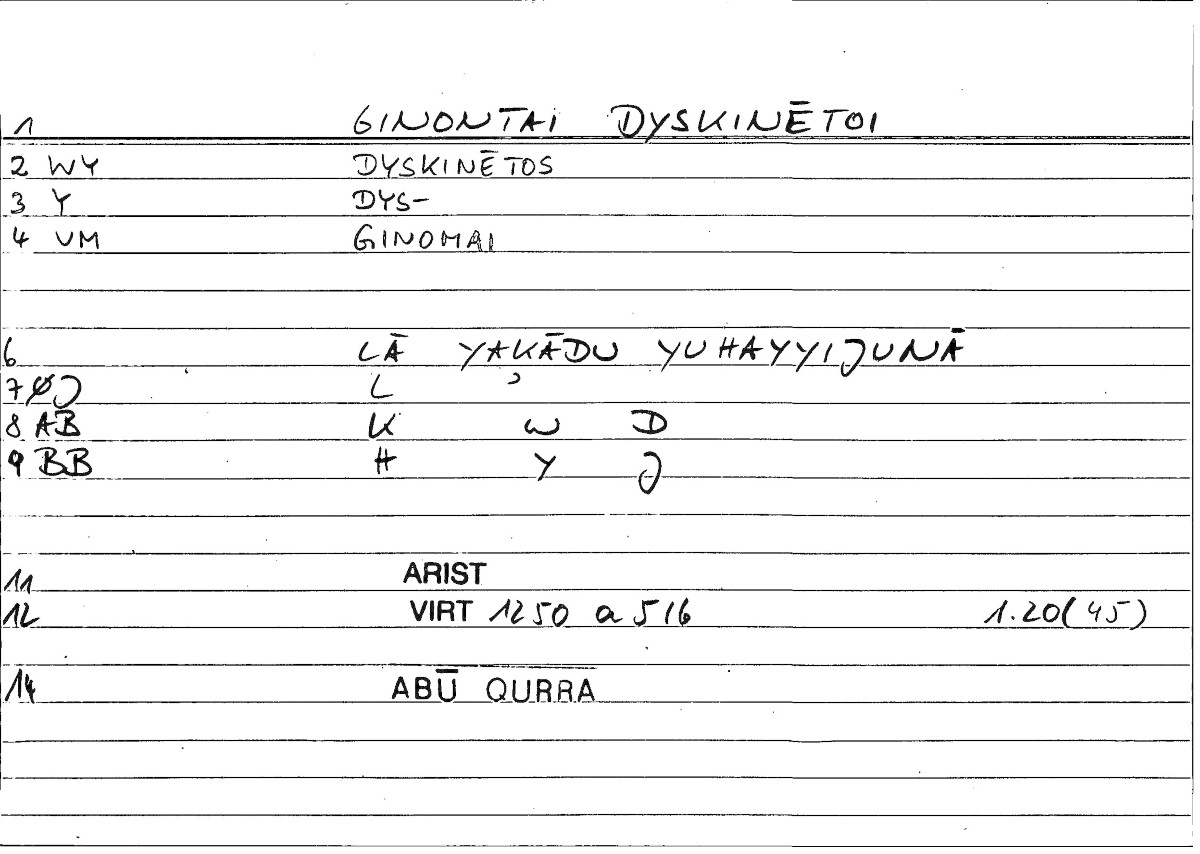 1 GINONTAI DYSKINĒTOI
2 WY DYSKINĒTOS
3 Y DYS-
4 VM GINOMAI
6 LĀ YAKĀDU YUHAYYIJUNĀ
7 ØJ L ʾ
8 AB K W D
9 BB H Y J
11 ARIST
12 VIRT 1250 a 516 1.20(45)
14 ABŪ QURRA